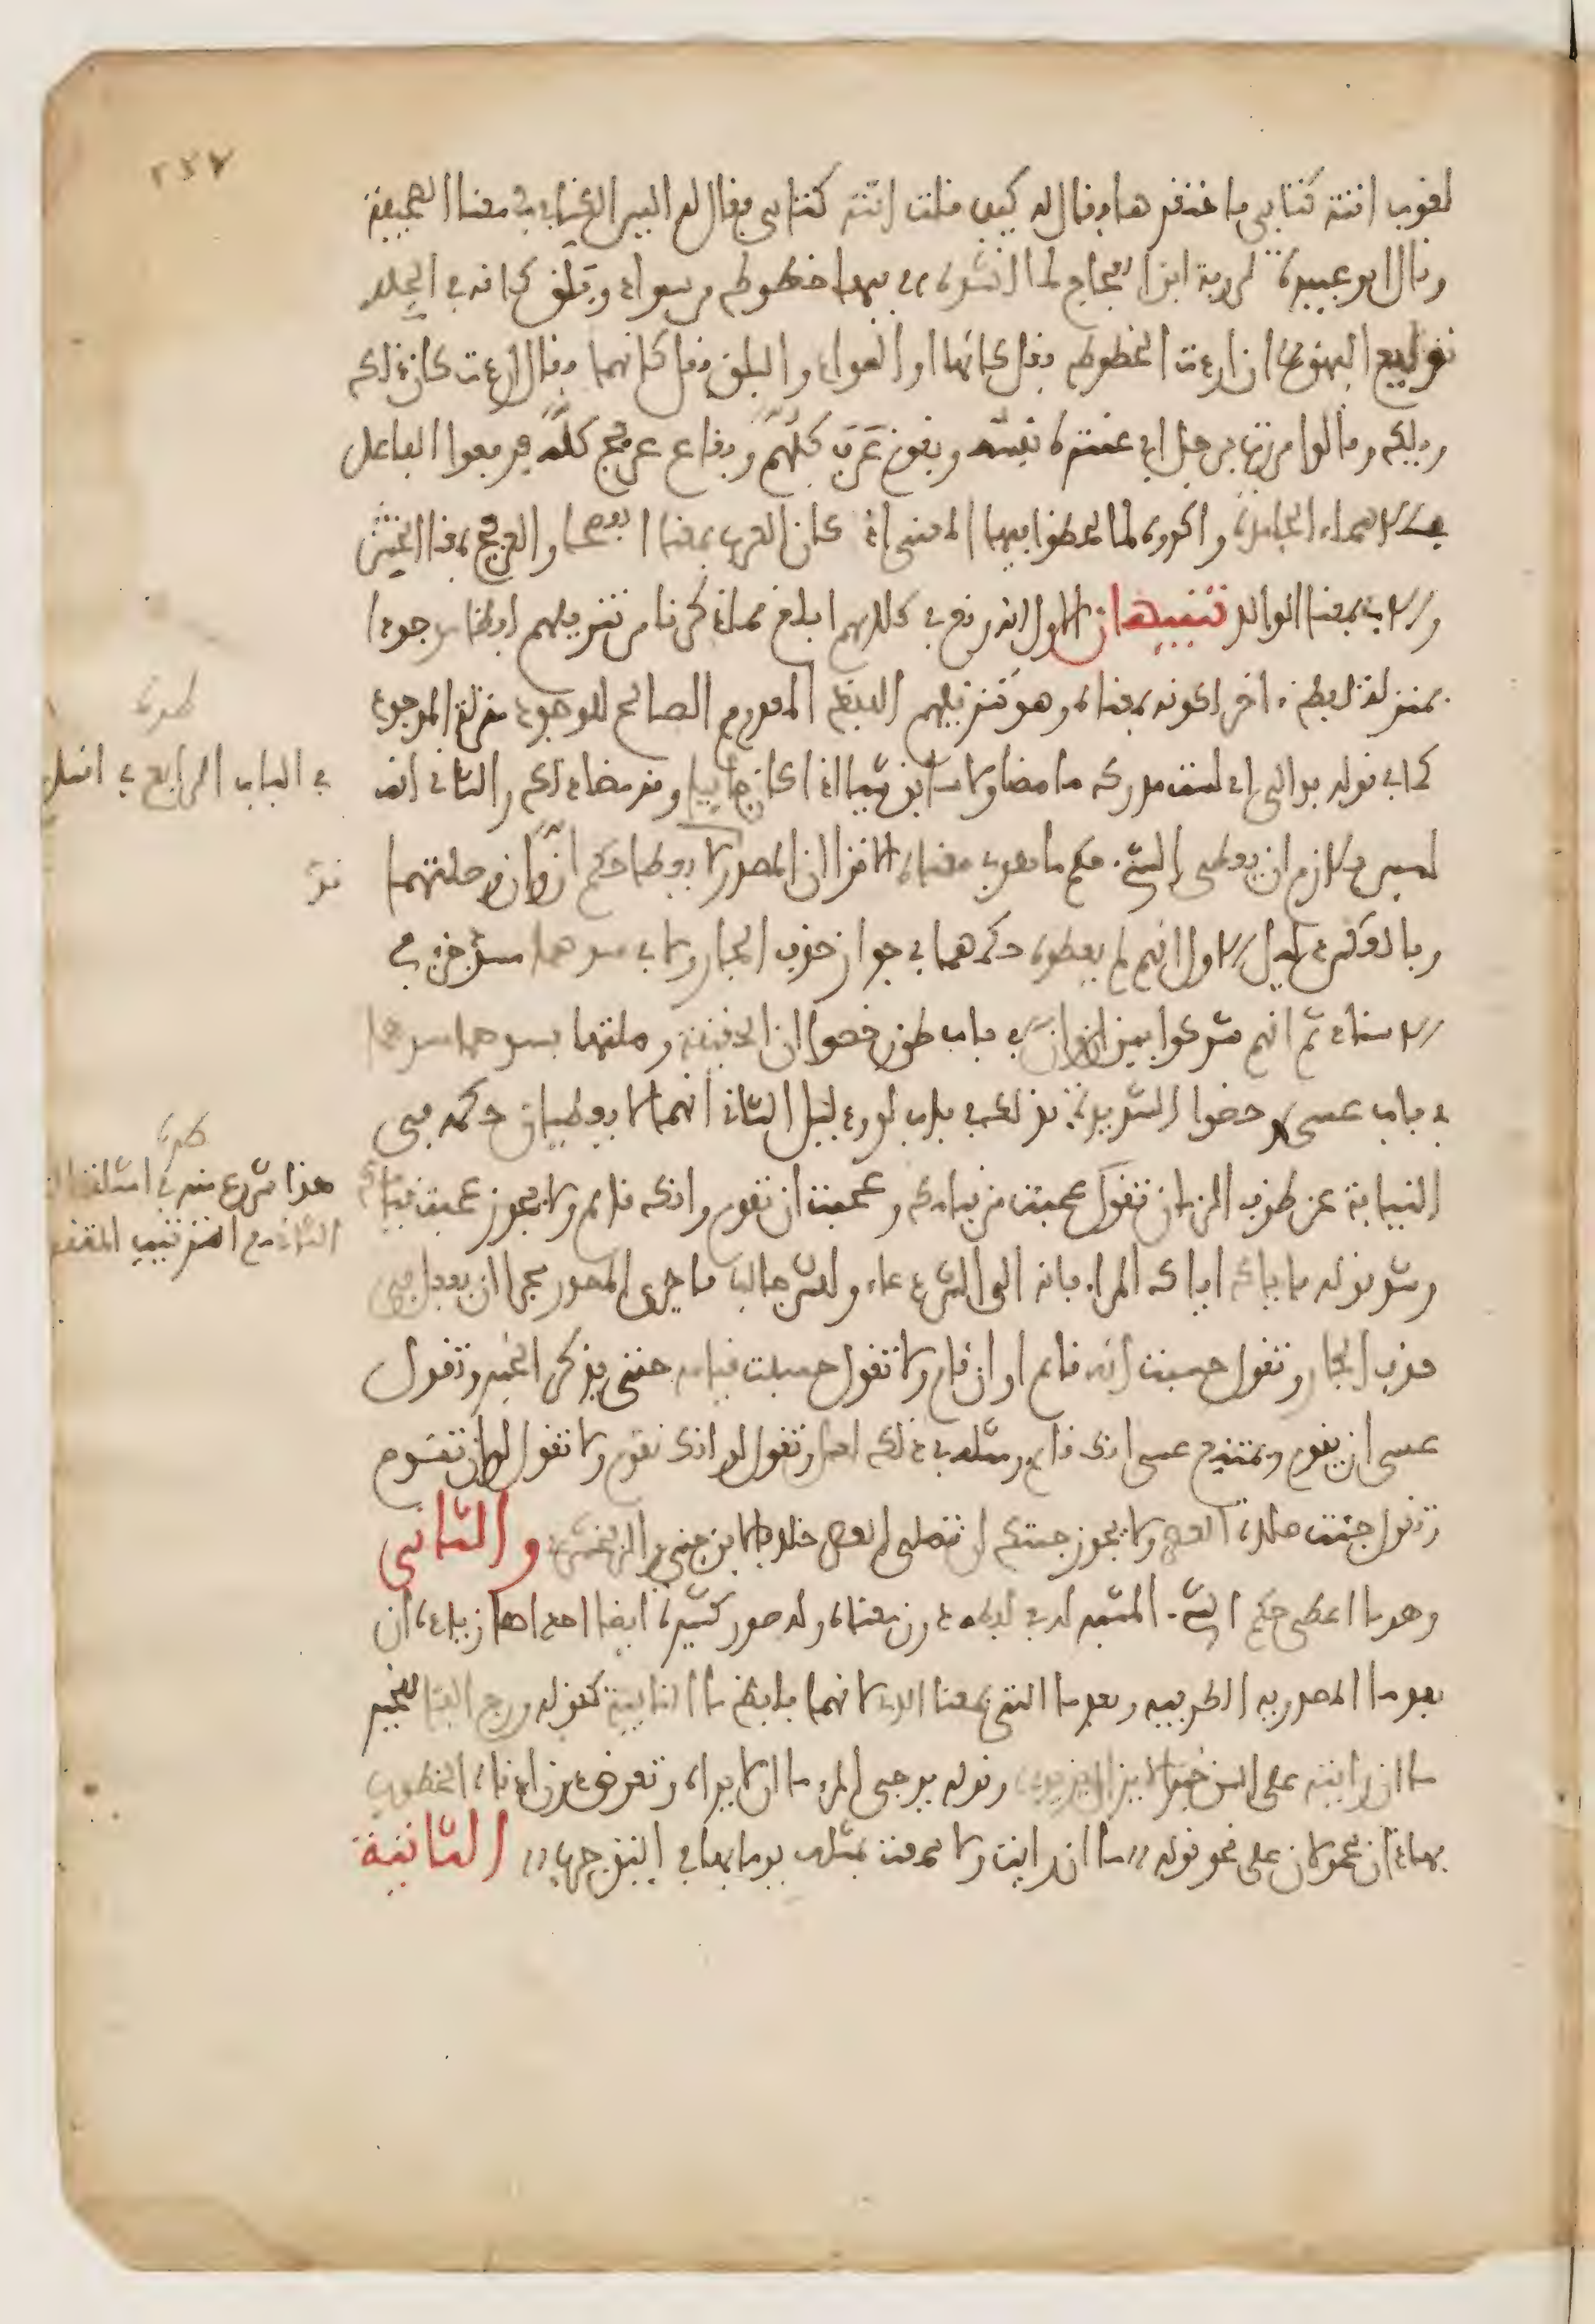 ٢٣٧
لغوب اتته كتابي فاحتقرها فقال له كيف قلت اتته كتابي فقال له اليس الكتاب في معنا الصحيفة
وقال ابو عبيدة لروبة ابن العجاج لما انشده فيها خطوط من سواد وبلق كانه في الجلد
توليع البهق ان اردت الخطوط فقل كانها او السواد والبلق فقل كانهما فقال اردت كان ذلك
ويلك وقالوا مررت برجل ابي عشرة نفسه وبقوم عَرَبَ كلُّهُم وبقاع عرفج كلُّه فرفعوا الفاعل
بالاسماء الجامدة واكدوه لما لحظوا فيها المعنى اذ كان العرب بمعنا الفصحا والعرفج بمعنا الخشن
والاب بمعنا الوالد تنبيهان الاول انه وقع في كلامهم ابلغ مما ذكرنا من تنزيلهم لفظا موجودا
بمنزلة لفظ اخر لكونه بمعناه وهو تنزيلهم اللفظ المعدوم الصالح للوجود منزلة الموجود
كما في قوله بدا لي اني لست مدرك ما مضا ولا سابق شيا اذا كان جاييا وقد مضا ذلك والثاني انه
ليس بلازم ان يعطى الشيء حكم ما هو في معناه الا ترا ان المصدر لا يعطا حكم انَّ وان وصلتهما
وبالعكس دليل الاول انهم لم يعطوه حكمهما في جواز حذف الجار ولا في سدهما مسد جزءي
الاسناد ثم انهم شركوا بين ان وان في باب ظن وخصوا ان الخفيفة وصلتها بسدها مسدهما
في باب عسى وخصوا الشديدة بذلك في باب لو ودليل الثاني انهما لا يعطيان حكمه في
النيابة عن ظرف الزمان تقول عجبت من قيامك وعجبت ان تقوم وانك قايم ولا يجوز عجبت قيامك
وشذ قوله فاياك اياك المراء فانه الى الشر دعاء وللشر جالب فاجرى المصدر مجرا ان يفعل في
حذف الجار وتقول حسبت انه قايم او ان قام ولا تقول حسبت قيامه حتى يذكر الخبر وتقول
عسى ان يقوم ويمتنع عسى انك قايم ومثله في ذلك لعل وتقول لو انك تقوم ولا تقول لو ان تقوم
وتقول جئت صلاة العصر ولا يجوز جئتك ان تصلي العصر خلافا لابن جني والزمخشري والثاني
وهو ما اعطي حكم الشيء المشبه له في لفظه دون معناه وله صور كثيرة ايضا احداها زيادة ان
بعد ما المصدريه الظرفيه وبعد ما التي بمعنا الذي لانهما بلفظ ما النافية كقوله ورج الفتا للخير
ما ان رايته على السن خيرا لا يزال يزيد وقوله يرجي المرء ما ان لا يراه وتعرض دون ادناه الخطوب
فهاذان محمولان على نحو قوله ما ان رايت ولا سمعت بمثله يوما كهاني اينق جرب الثانية
طرة
في الباب الرابع في
طرة
هذا شروع منه في